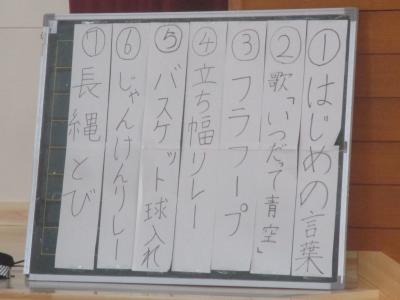 ①はじめの言葉
②歌「いつだって青空」
③フラフープ
④立ち幅リレー
⑤バスケット球入れ
⑥じゃんけんリレー
⑦長縄とび